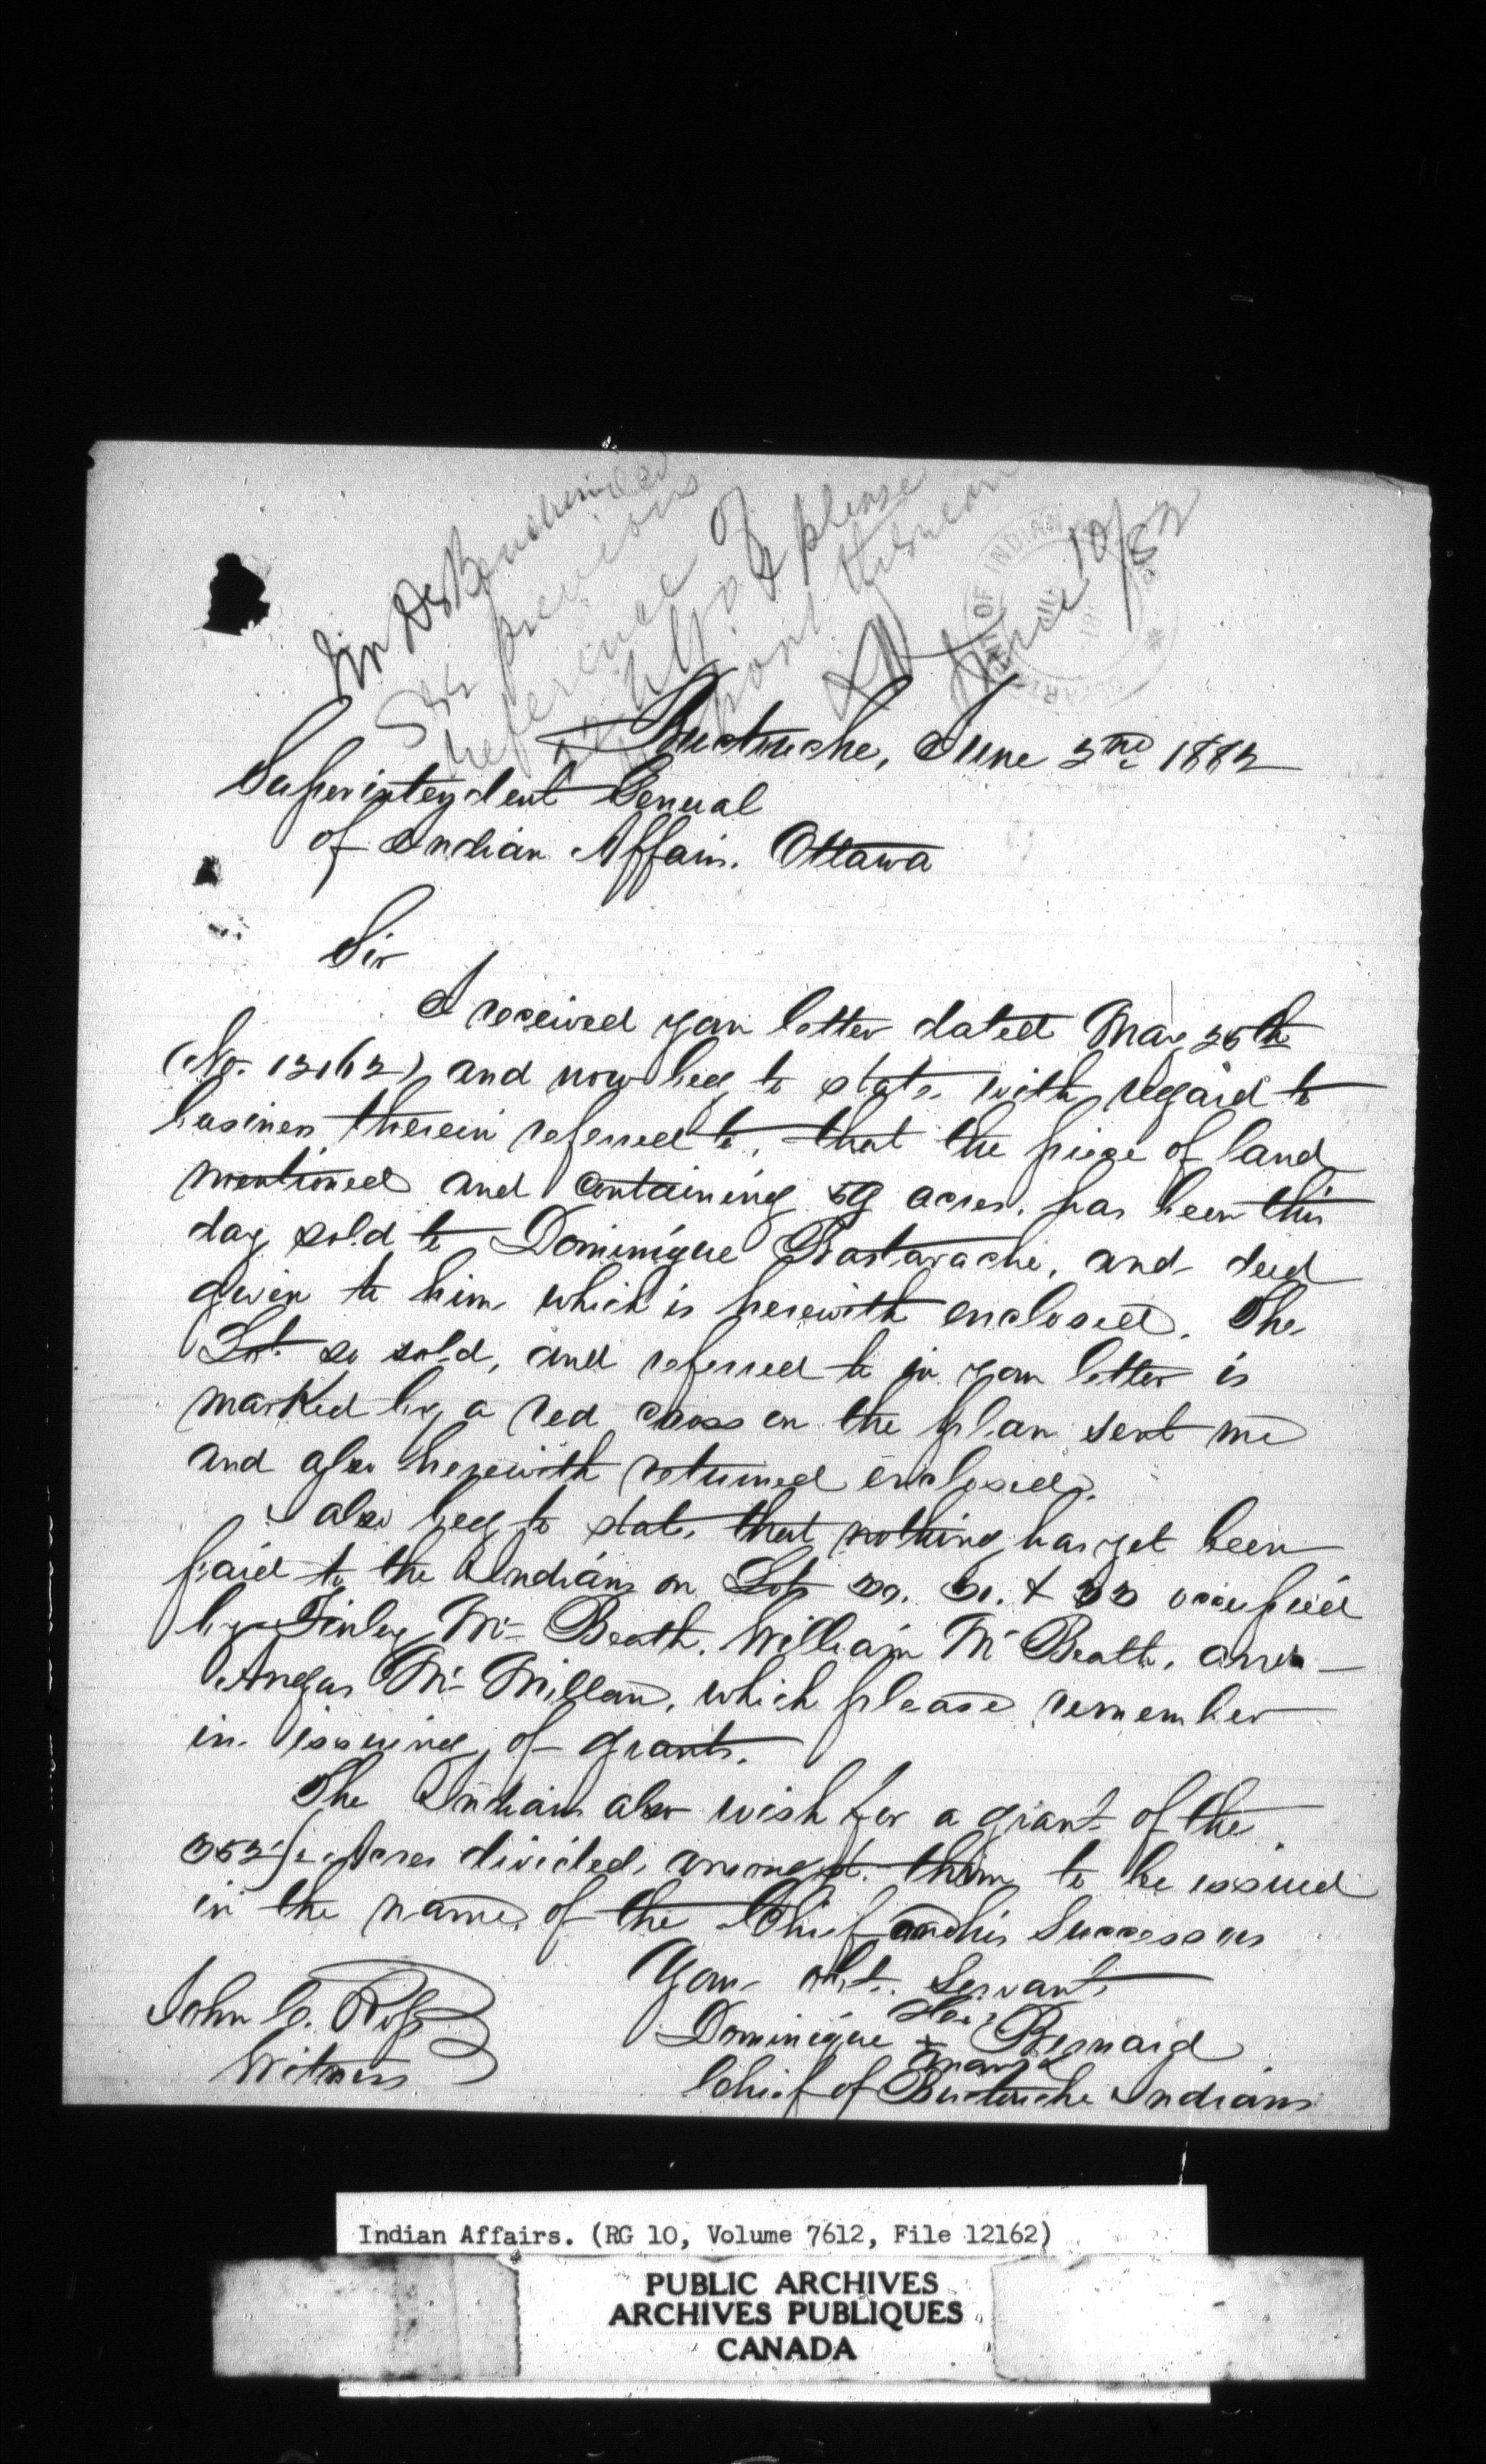 Mr De Boucherville
See previous
reference of
& please
report thereon
June 10/82
OF INDIAN
Buctouche, June 2nd 1882
Superintendent General
of Indian Affairs. Ottawa
Sir
I received your letter dated May 25th
(No. 12162) and now beg to state with regard to
business therein referred to, that the piece of land
mentioned and containing 59 acres, has been this
day sold to Dominique Bastarache, and deed
given to him which is herewith enclosed. The
Lot so sold, and referred to in your letter is
marked by a red cross on the plan sent me
and also herewith returned enclosed.
I also beg to state that nothing has yet been
paid to the Indians on Lots & occupied
by Finley Mc Beath, William Mc Beath, and
Angus Mc Millan, which please remember
in issuing of grants.
The Indians also wish for a grant of the
352½ Acres divided amongst them to be issued
in the name of the Chief and his Successors
Your obt. Servant
His
Dominique x Bernard
mark
Chief of Buctouche Indians
John C. Ross
Witness
Indian Affairs. (RG 10, Volume 7612, File 12162)
PUBLIC ARCHIVES
ARCHIVES PUBLIQUES
CANADA